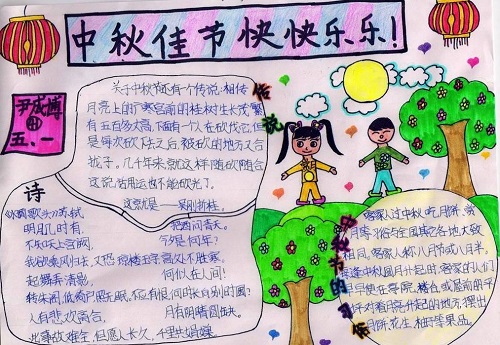 中秋佳节快快乐乐!
尹成博
五.一
传说
关于中秋节还有个传说:相传
月亮上的广寒宫前的桂树生长茂繁
有五百多丈高,下面有一个人在砍伐它,但是
每次砍下去之后,被砍的地方又合
拢了。几千年来,就这样随砍随合
这就是——吴刚折桂
诗
《水调歌头》苏轼
明月几时有,
把酒问青天。
不知天上宫阙,
今夕是何年?
我欲乘风归去,又恐琼楼玉宇,高处不胜寒。
起舞弄清影,
何似在人间!
转朱阁,低绮户,照无眠。不应有恨,何时长向别时圆?
人有悲欢离合,
月有阴晴圆缺。
此事古难全。但愿人长久,千里共婵娟。
中秋节的习俗
客家人过中秋,吃月饼、赏
月等习俗与全国其它各地大致
相同。客家人称八月节或八月半,
每逢中秋圆月升起时,客家的人们
便早早便在